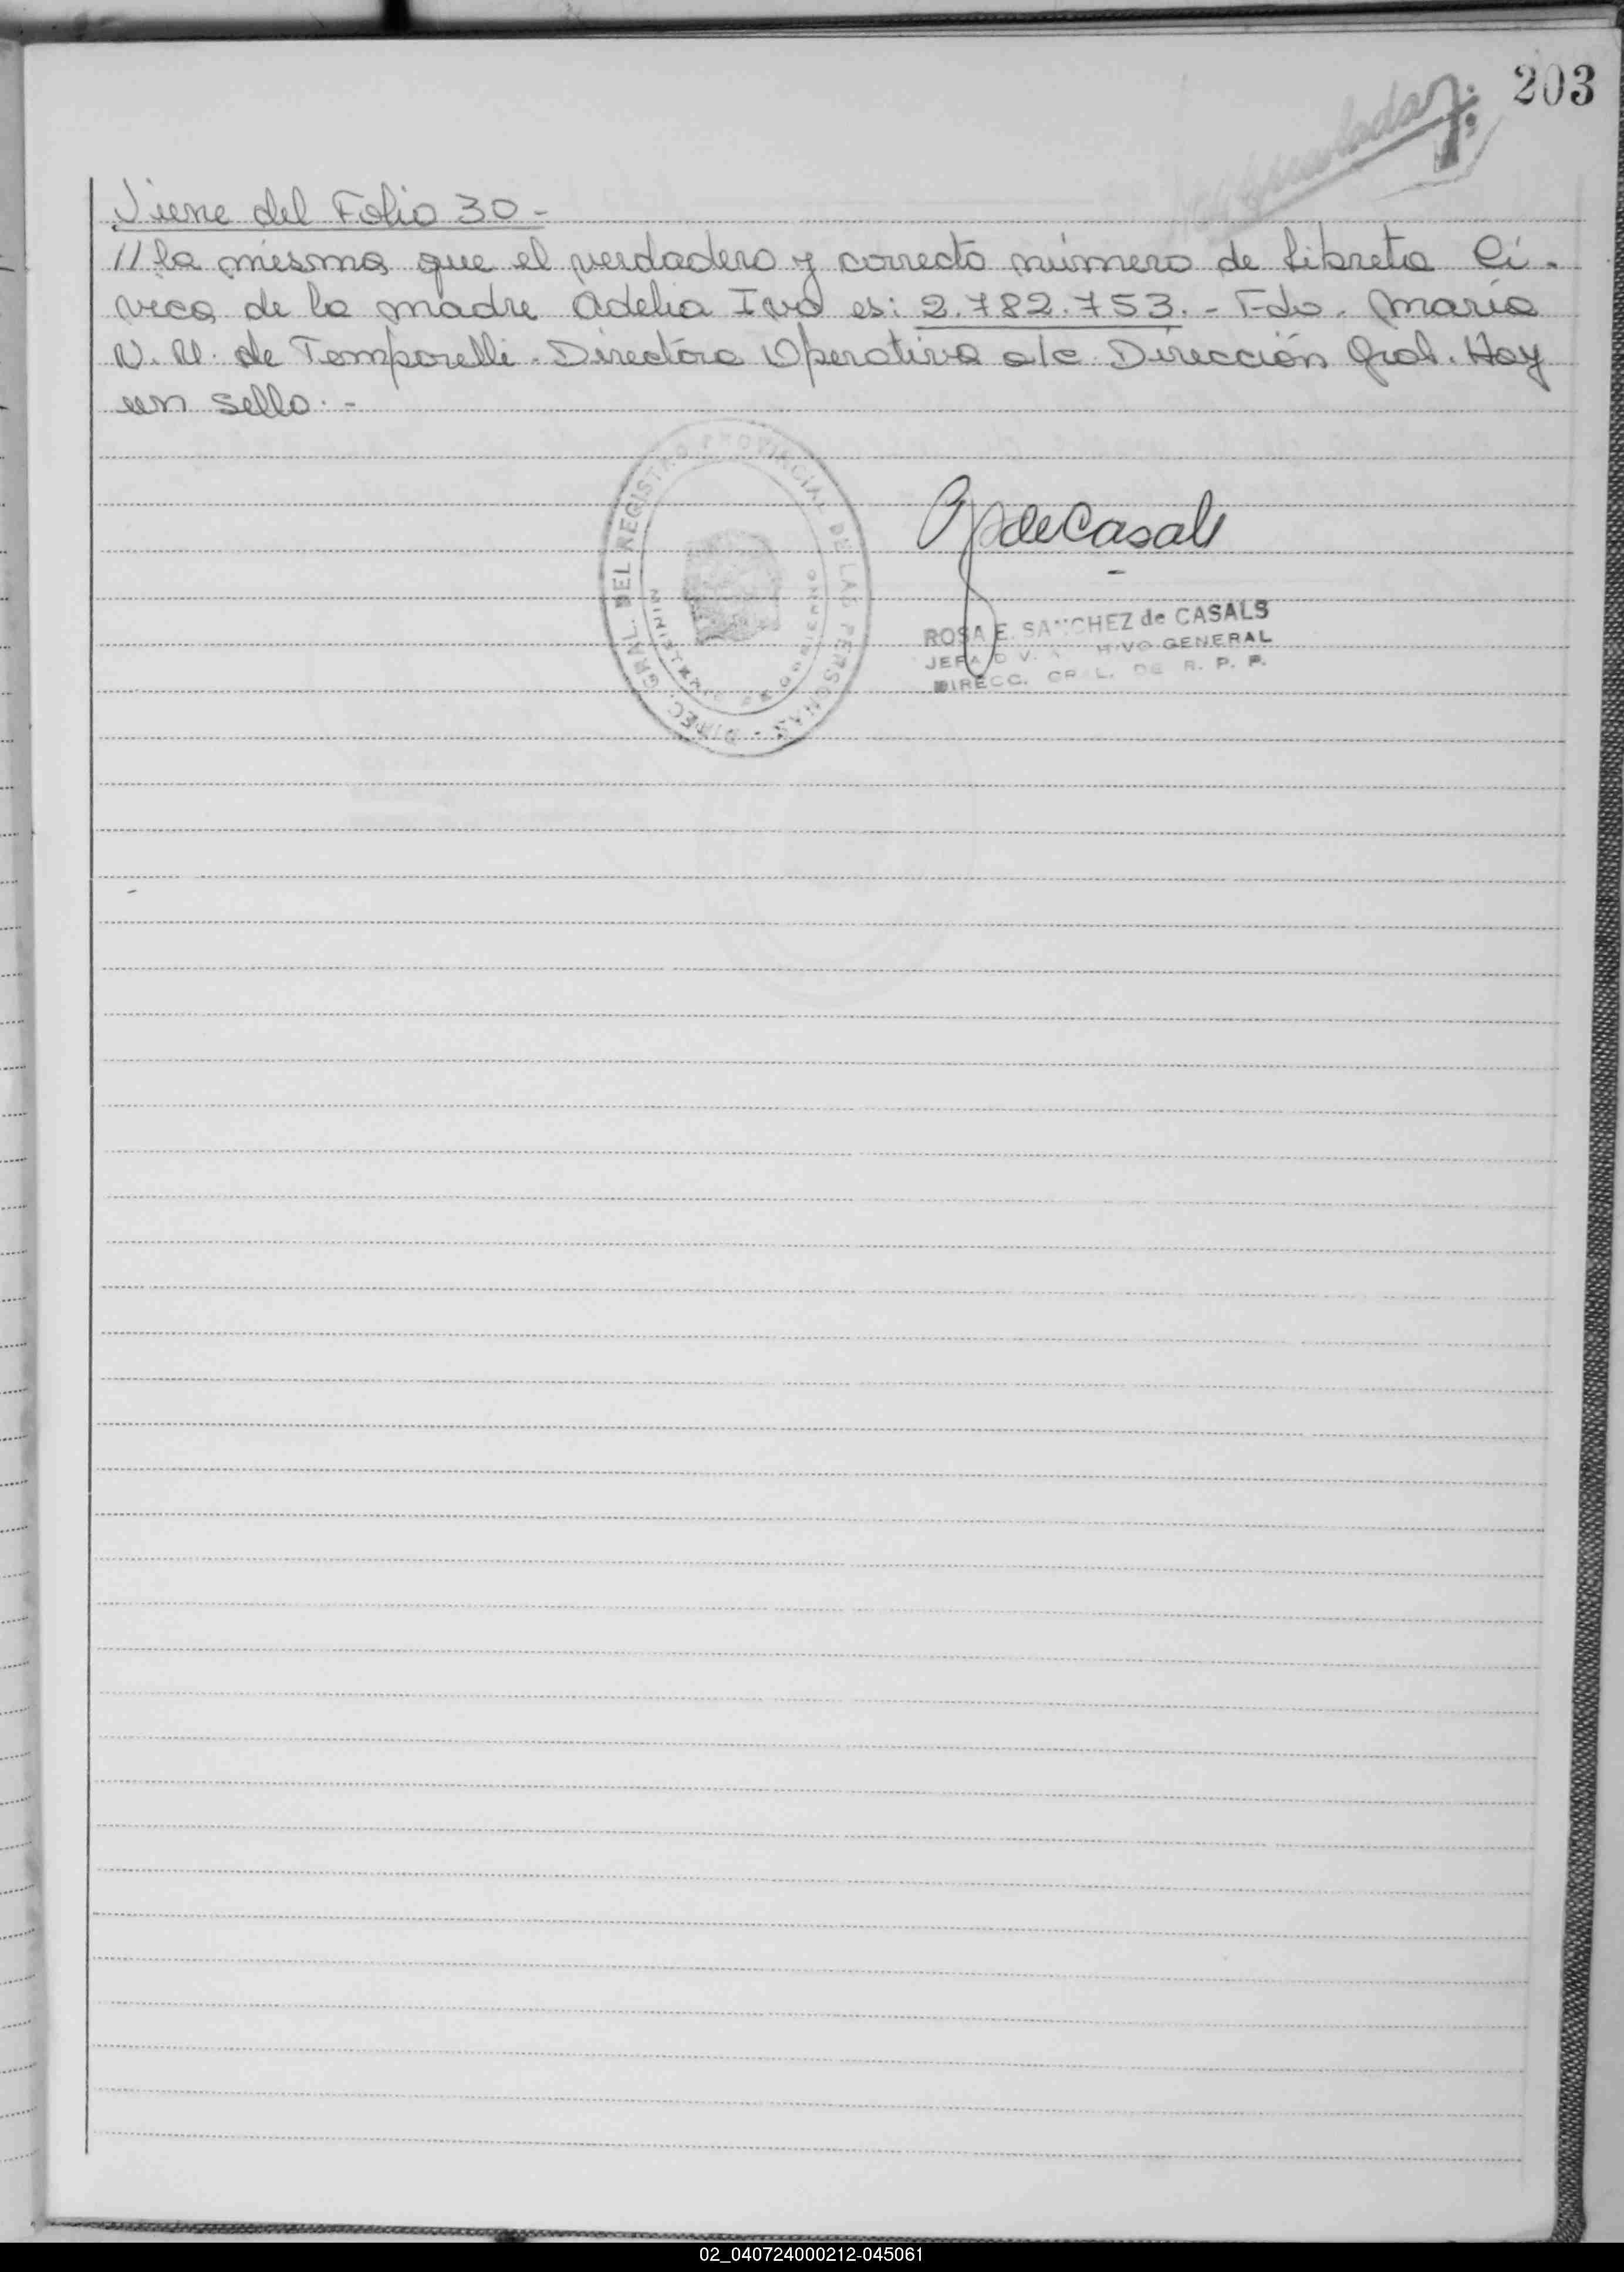 203
Viene del Folio 30 -
// la misma que el verdadero y correcto número de Libreta Cí-
vica de la madre Adelia Iva es: 2.782.753. - Fdo. María
N. U. de Temporelli. Directora Operativa a/c Dirección Gral. Hay
un sello. -
DIREC. GRAL. DEL REGISTRO PROVINCIAL DE LAS PERSONAS -
de Casals
ROSA E. SANCHEZ de CASALS
JEFA DIV. ARCHIVO GENERAL
DIRECC. GRAL. DE R. P. P.
02_040724000212-045061